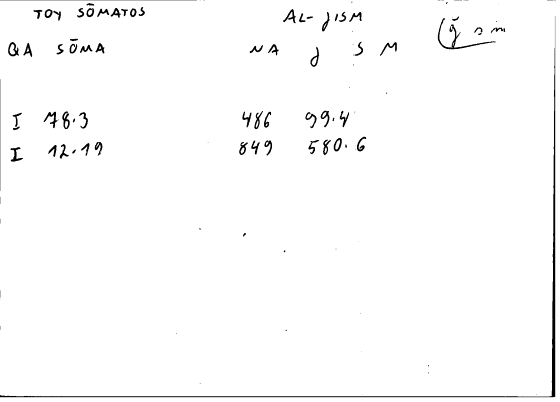 TOY SŌMATOS AL-JISM
QA SŌMA NA J S M (ǧ s m
I 78.3 486 99.4
I 12.19 849 580.6